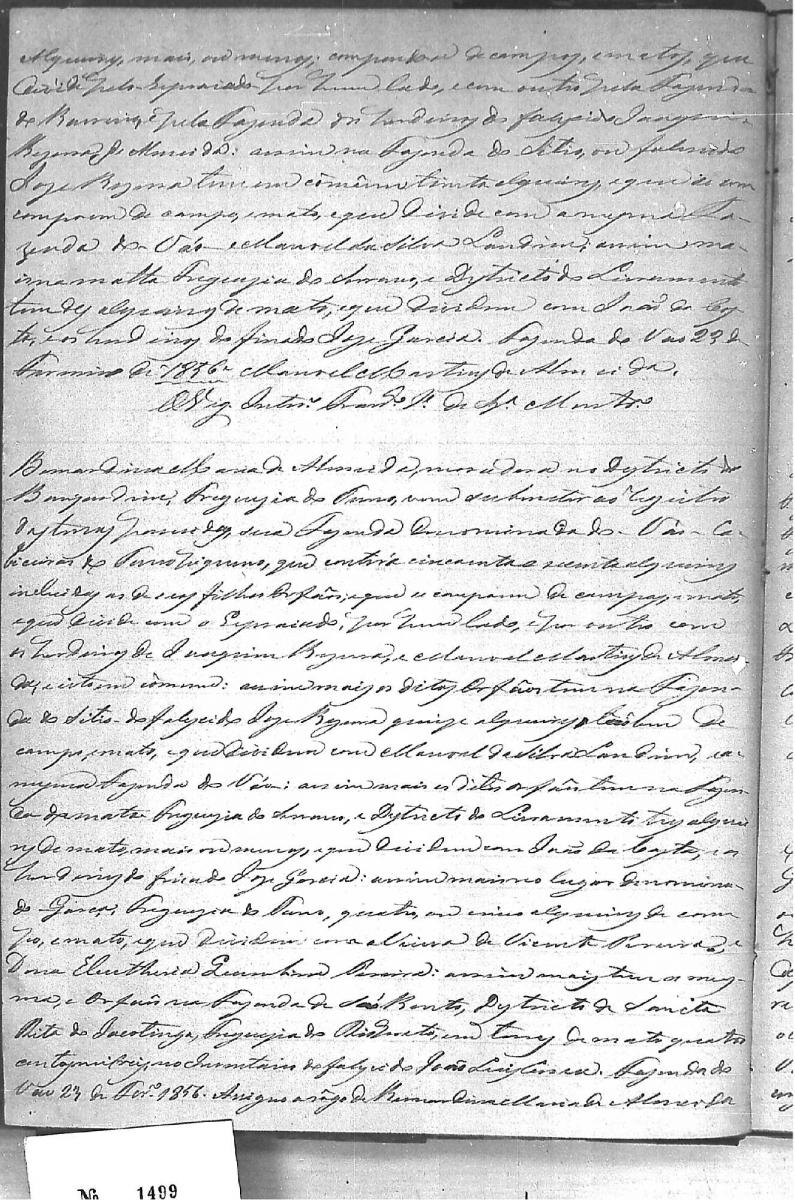 Alqueires, mais, ou menos; compondose de campos, e matos, que
divide pelo Espraiado por hum lado, e com outro pela Fazenda
do Barreiro, e pela Fazenda dos herdeiros do falecido Joaquim
Bezerra de Almeida: assim na Fazenda do Sitio, ou falecido
Joze Bezerra tem em cômum trinta alqueires, e que se com
compoem de campo, e mato, e que divide com a mesma Fa-
zenda do Váo e Manoel da Silva Landim; assim ma-
is na matta Freguezia do e Dystricto do Livramento
tem dez alqueires de mato, e que dividem com João da Cos-
ta, e os herdeiros do finado Joze Garcia. Fazenda do Vao 23 de
Fevereiro de 1856 Manoel Martins de Almeida.
O Vig. Inter.
Bernardina Maria de Almeida, moradora no Dystricto do
Freguezia do Turvo, vem submeter ao Registro
as terras que possue, sua Fazenda denominada do Váo Ca-
biceiras do Turvo piqueno, que contem cincoenta e alqueires
incluidos os de seos filhos Orfãos, e que se compoem de campos, e mato,
e que divide com o Espraiado, por hum lado, e por outro com
os herdeiros de Joaquim Bezerra, e Manoel Martins de Almei-
da, e isto em cômum: assim mais os ditos Orfãos tem na Fazen-
da do Sitio do falecido Joze Bezerra quinze alqueires de
campo, e mato, e que dividem com Manoel da Silva Landim, e a
mesma Fazenda do Váo: assim mais os ditos orfãos tem na Fazen-
da da mata Freguezia do e Dystricto do Livramento tres alquei-
res de mato, mais ou menos, e que dividem com João da Costa, e os
herdeiros do finado Joze Garcia: assim mais no lugar denomina-
do Freguezia do Turvo, quatro, ou cinco alqueires de cam
po, e mato, e que dividem com a Viuva de Vicente Pereira, e
Dona Eleutheria Pereira: assim mais tem a mes-
ma, e Orfãos na Fazenda de São Bento, Dystricto de Sancta
Rita do Jacotinga, Freguezia do em terras de mato quatro
centos mil reis, no Inventario do falecido João Fazenda do
Vao 23 de Fevr.º 1856. Asigno a rôgo de Bernardina Maria de Almeida
Nº 1499